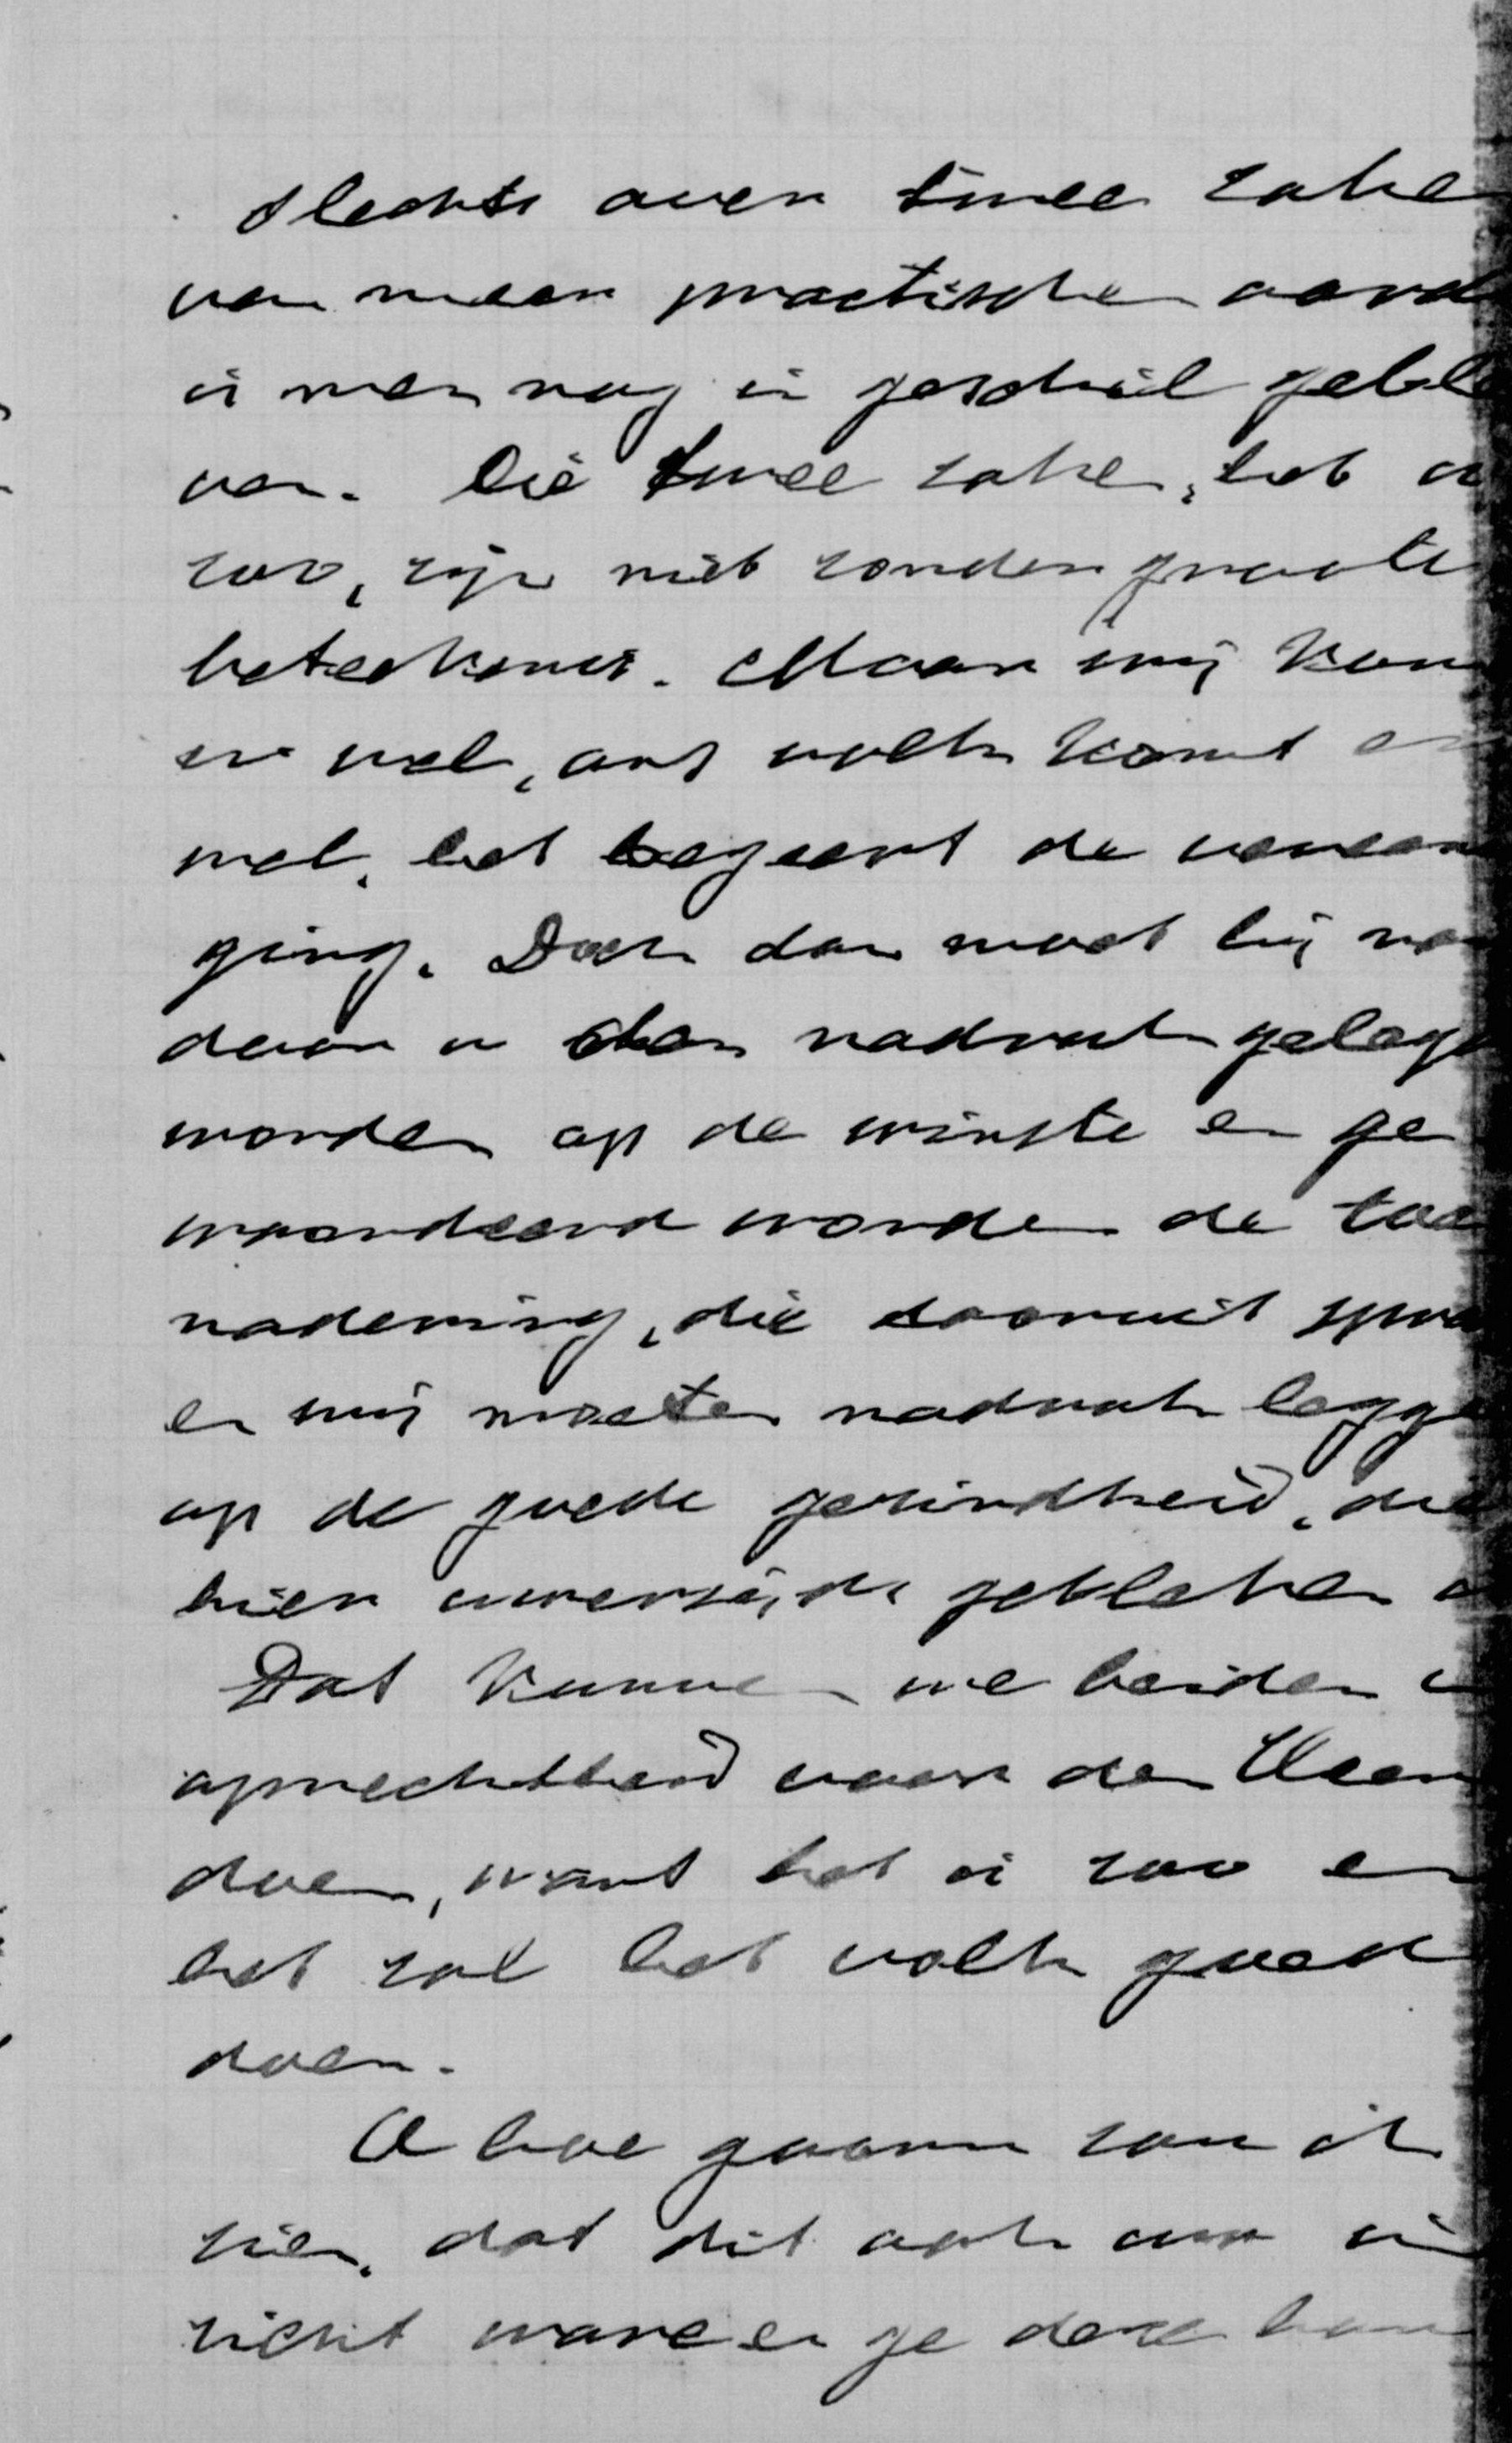 Slechts over twee zake
van meer practischen aard
is men nog in geschil geble
ven. Die twee zaken, het is
zoo, zijn niet zonder groote
beteekenis. Maar wij kom
er wel, ons volk komt er
wel, het begeert de vereeni
ging. Doch dan moet bij
dezen de nadruk gelegd
worden op de winste en ge
waardeerd worden de toe
nadering, die daaruit spre
en wij moeten nadruk legge
op de goede gezindheid, die
hier wederzijds gebleken is
Dat kunnen we beiden in
oprechtheid voor den Heer
doen, want het is zoo en
het zal het volk goed
doen.
O hoe gaarne zou ik
zien, dat dit ook uw in
zicht ware en ge deze